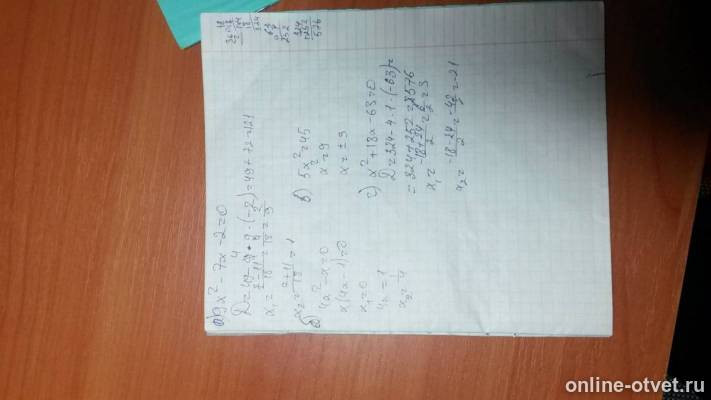 а) 9x² - 7x - 2 = 0
D = 49 - 4 · 9 · (-2) = 49 + 72 = 121
x₁ = (7 - 11)/18 =
x₂ = (7 + 11)/18 = 1
б) 4x² - x = 0
x(4x - 1) = 0
x₁ = 0
4x = 1
x₂ = 1/4
в) 5x² = 45
x² = 9
x = ± 3
с) x² + 18x - 63 = 0
D = 324 - 4 · 1 · (-63) =
= 324 + 252 = 576
x₁ = (-18 + 24)/2 = 6/2 = 3
x₂ = (-18 - 24)/2 = -42/2 = -21
324
252
576
online-otvet.ru